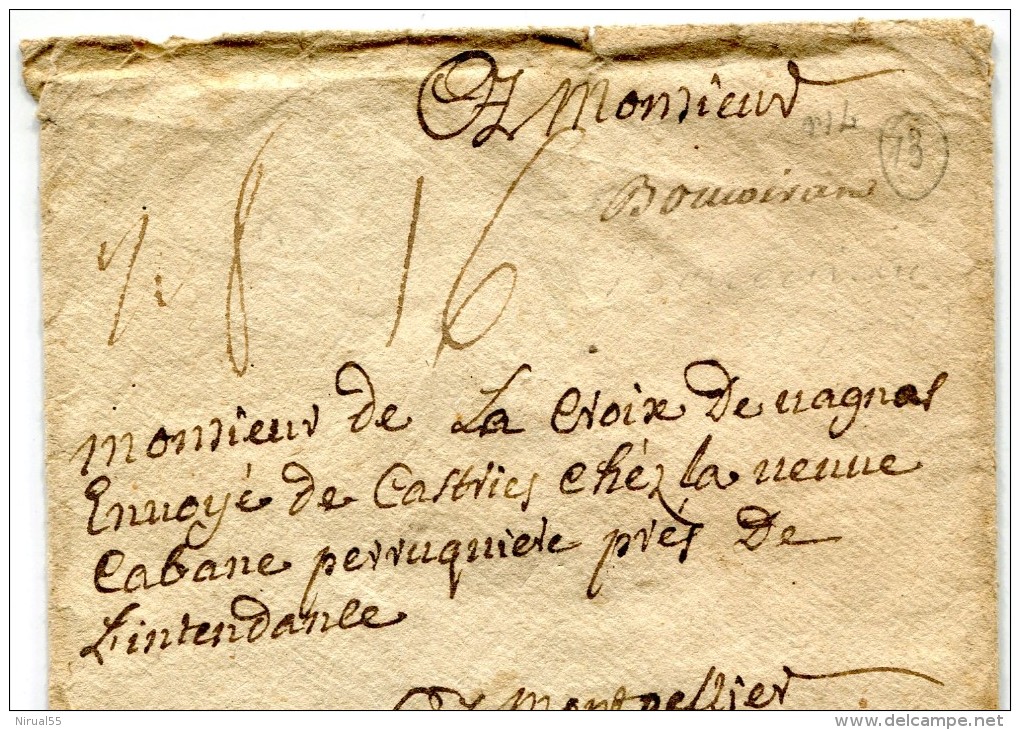 A Monsieur
73
Boucoiran
16
monsieur de La croix De uagnas
Enuoyé de Castries chéz la ueuue
Cabane perruquiere prés De
L'intendance
A Montpellier
Nirual55
delcampe.net